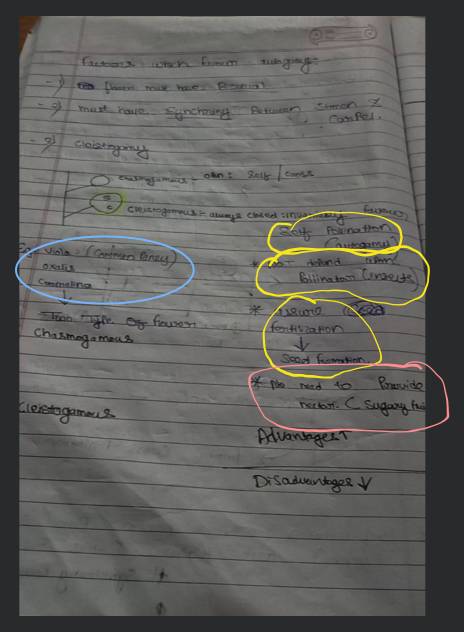 Factors which favour autogamy:-
-1) flower must have Bisexual
-2) must have Synchrony Between
Carpel.
-3) Cleistogamy
chasmogamous :- open : Self / Cross
Cleistogamous :- always closed :
Self Pollination
(autogamy)
Eg- Viola - (Common Pansy)
oxalis
Commelina
* depend upon
Pollinator (insects)
Type of flower
Chasmogamous
*
fertilization
↓
Seed formation
* No need to Provide
nectar. (Sugary
Cleistogamous
Advantages↑
Disadvantages ↓